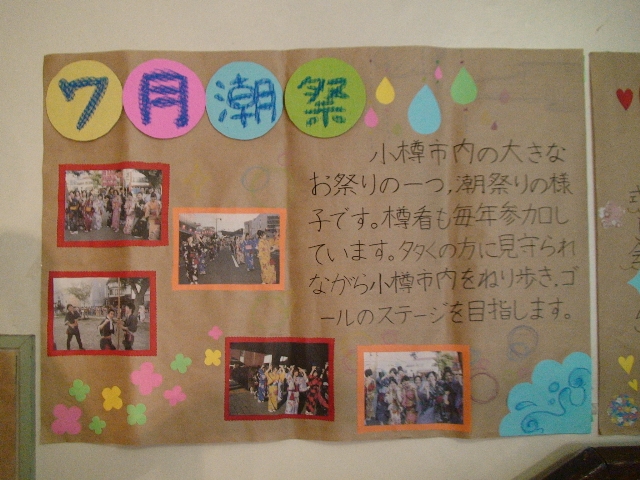 7月潮祭
小樽市内の大きな
お祭りの一つ、潮祭りの様
子です。樽看も毎年参加し
ています。多くの方に見守られ
ながら小樽市内をねり歩き、ゴ
ールのステージを目指します。